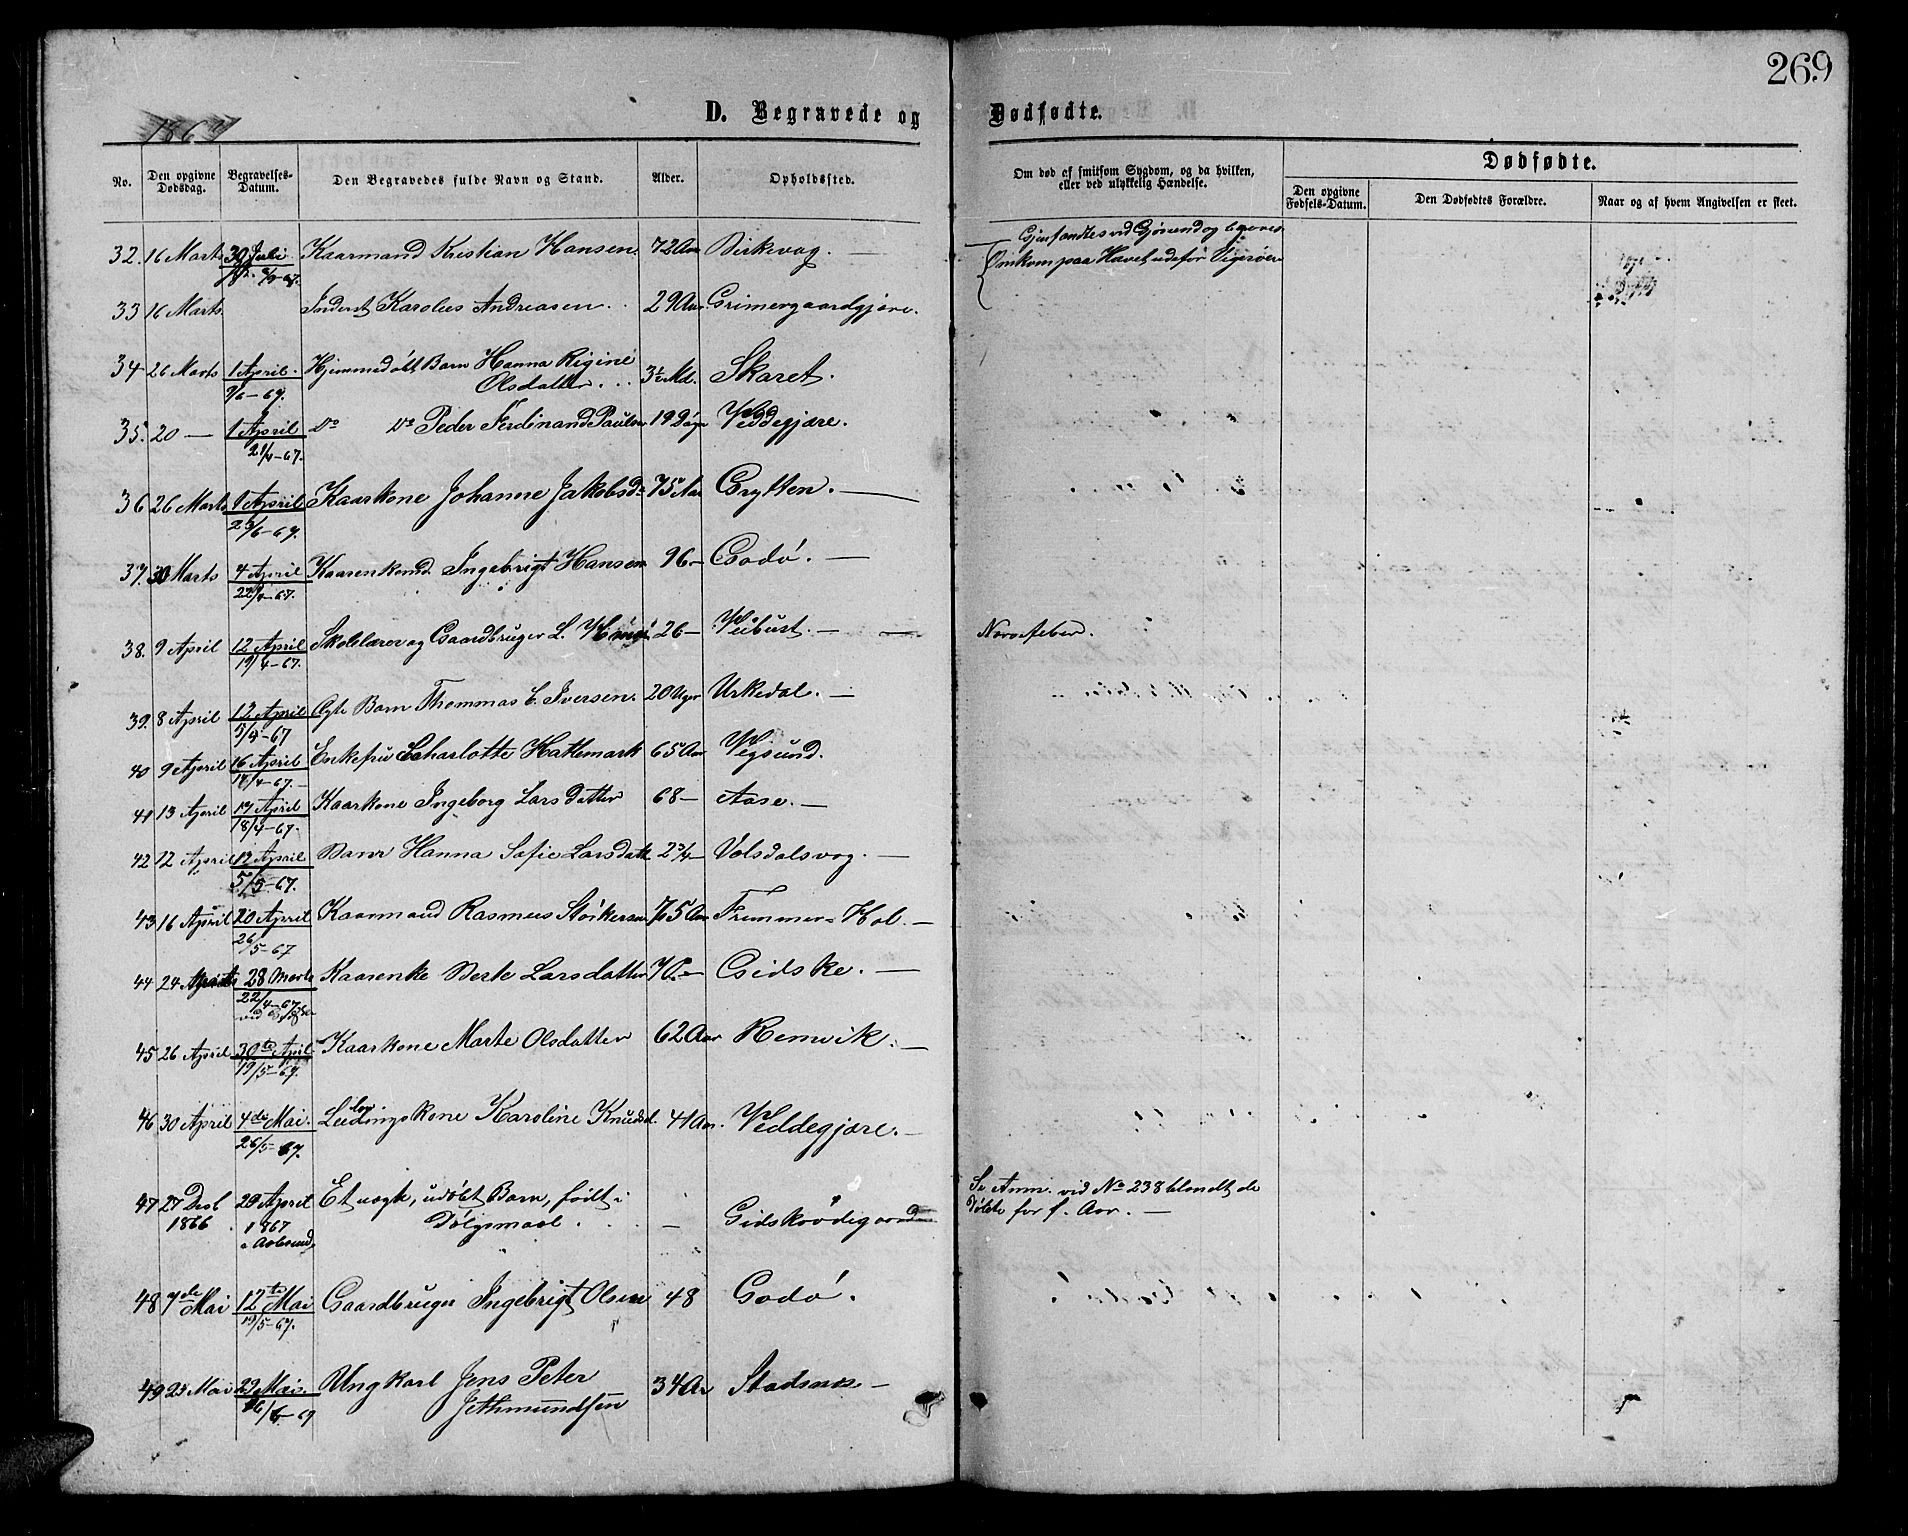 269
1867
D. Begravede og Dødfødte.
No.
Den opgivne Dødsdag.
Begravelses-Datum.
Den Begravedes fulde Navn og Stand.
Alder.
Opholdssted.
Om død af smitsom Sygdom, og da hvilken,
eller ved ulykkelig Hændelse.
Dødfødte.
Den opgivne Fødsels-Datum.
Den Dødfødtes Forældre.
Naar og af hvem Angivelsen er skeet.
32. 16 Marts 30 Juli Kaarmand Kristian Hansen. 72 Aar Birkvag. —
Gjenfandtes ved
Omkom paa Havet udefor Vigerøen
33 16 Marts Inderst Karolus Andreasen 29 Aar Grimergaardgjære.
34 26 Marts 1 April Hjemmedøbt Barn Hanna Rigine 3½ Md. Skaret.
9/6 – 67. Olsdatter
35. 20 — 1 April Do Do Peder Ferdinand Paulsen 19 Dage Veddegjære.
21/4 – 67.
36 26 Marts 1 April Kaarkone Johanne Jakobsd. 75 Aar Grytten. —
23/6 – 67.
37. 30 Marts 4 April Ingebrigt Hansen 96 – Godø. —
22/4 – 67.
38. 9 April 12 April Skolelærer og Gaardbruger L. 26 – Veibust. — Nervefeber.
19/4 – 67.
39. 8 April 12 April Ægte Barn Thommas E. Iversen. 20 Uger Urkedal. —
5/4 – 67
40 9 April 16 April Enkefru Charlotte Hattemark 65 Aar Vegsund.
18/4 – 67.
41 13 April 17 April Kaarkone Ingeborg Larsdatter 68 – Aase. —
18/4 – 67.
42 12 April 17 April Barn Hanna Sofie Larsdatt 2 3/4 – Volsdalsvag. —
5/5 – 67.
43 16 April 20 April Kaarmand Rasmus Størkersen 75 Aar Fremmer-Hol. —
26/5 – 67
44 24 Marts 28 Marts Kaarenke Berte Larsdatter 70 – Gidske. —
22/4 – 67
45 26 April 30te April Kaarkone Marte Olsdatter 62 Aar Remvik. —
19/5 – 67.
46 30 April 4de Mai. Leilændingskone Karoline Knudsd. 41 Aar. Veddegjære. —
26/5 – 67.
47 27 Decb 20 April Et uægte, udøbt Barn, født i
1866 1867 Dølgsmaal. — Gidskeødegaard
i Aalesund
Se Anm. vid No 238 blandt de
Døbte for f. Aar. —
48 7de Mai 12te Mai Gaardbruger Ingebrigt Olsen 48 Godø.
19/5 – 67.
49 25 Mai 29 Mai Ungkarl Jens Peter 34 Aar Stadsnes —
16/6 – 67 Jethmundsen